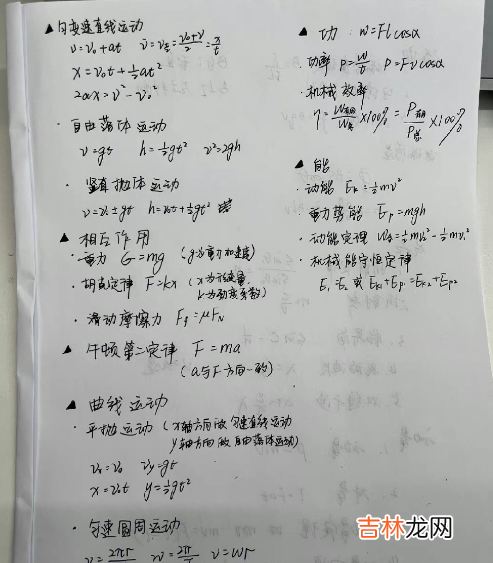 ▲匀变速直线运动
v=v₀+at  v̄=v_{t/2}=(v₀+v)/2=x/t
x=v₀t+½at²
2ax=v²-v₀²
·自由落体运动
v=gt  h=½gt²  v²=2gh
·竖直抛体运动
v=v₀±gt  h=v₀t±½gt²
▲相互作用
·重力 G=mg (g为重力加速度)
·胡克定律 F=kx (x为形变量,
k为劲度系数)
·滑动摩擦力 Ff=μFN
▲牛顿第二定律 F=ma
(a与F方向一致)
▲曲线运动
·平抛运动 (x轴方向做匀速直线运动
y轴方向做自由落体运动)
vₓ=v₀  v_y=gt
x=v₀t  y=½gt²
·匀速圆周运动
v=2πr  w=2π/T  v=wr
▲功: W=Flcosα
·功率 P=W/t  P=Fvcosα
·机械效率
η=W有用/W总×100%=P有用/P总×100%
▲能
·动能 Ek=½mv²
·重力势能 Ep=mgh
·动能定理 W总=½mv₂²-½mv₁²
·机械能守恒定律
E₁=E₂ 或 Ek₁+Ep₁=Ek₂+Ep₂
吉林龙网